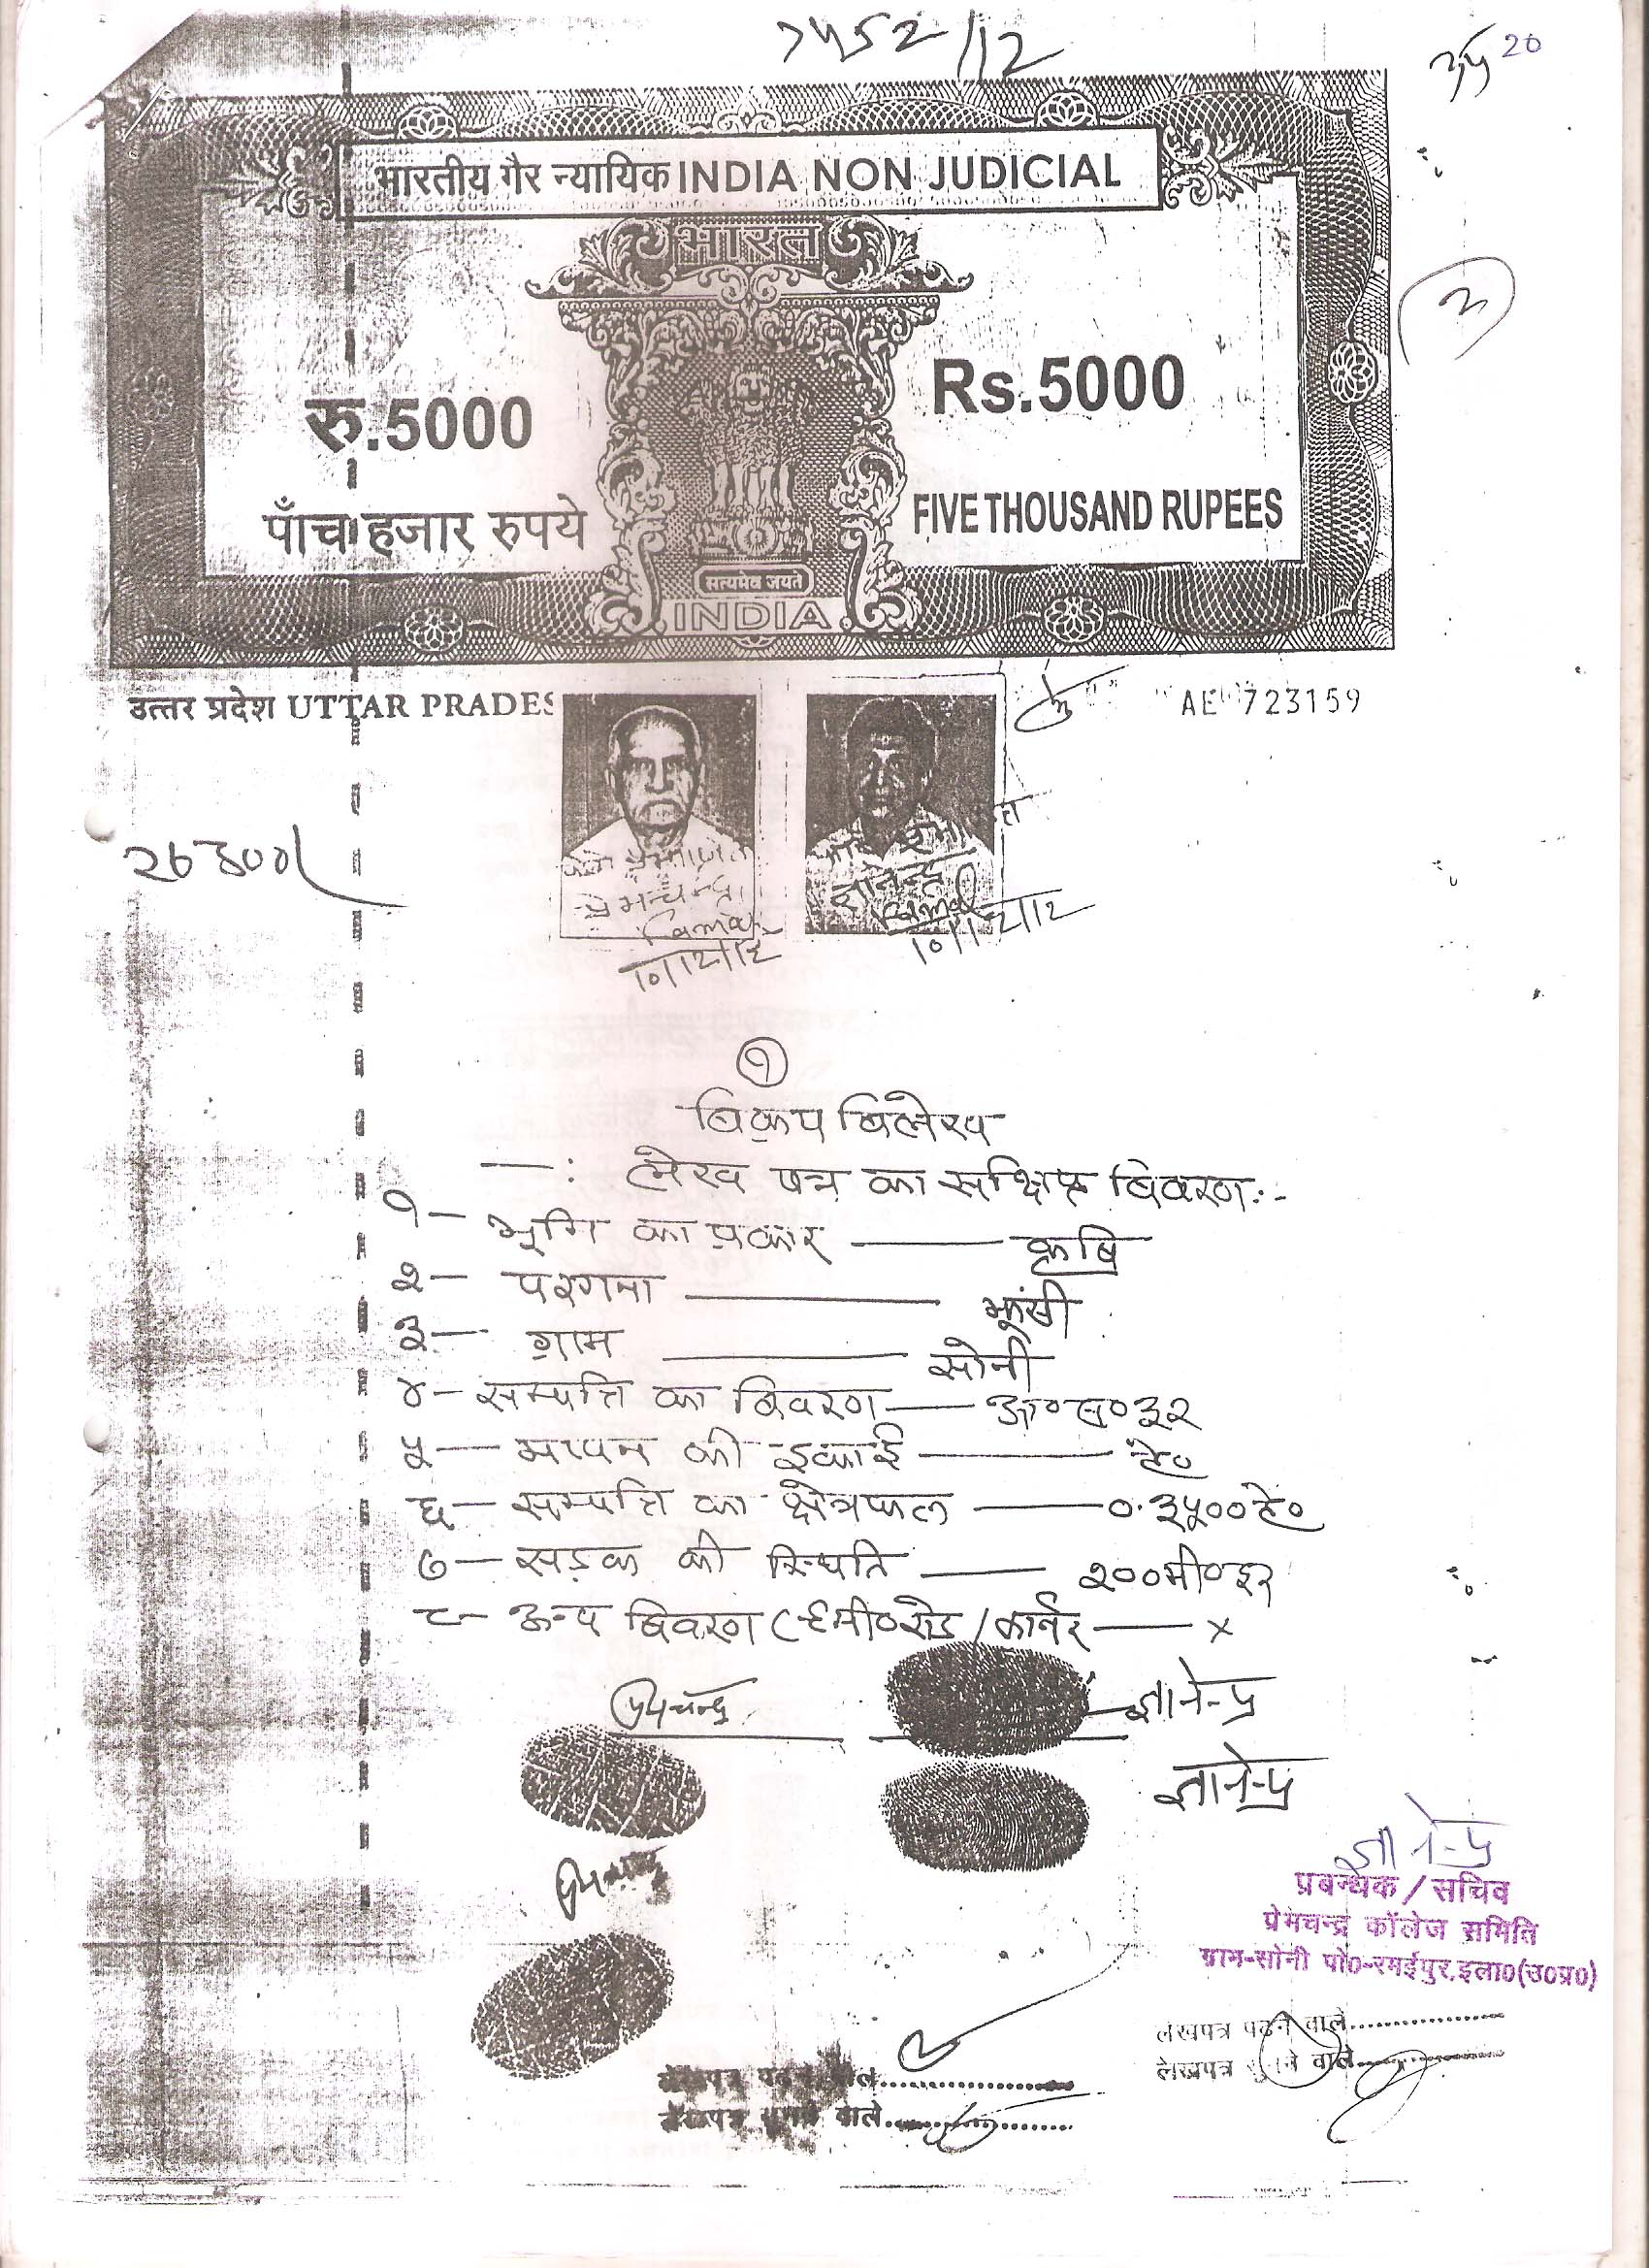 7452/12
20
भारतीय गैर न्यायिक INDIA NON JUDICIAL
भारत
रु.5000
Rs.5000
पाँच हजार रुपये
FIVE THOUSAND RUPEES
सत्यमेव जयते
INDIA
उत्तर प्रदेश UTTAR PRADES
AE 723159
प्रेमचन्द्र
ज्ञानेन्द्र
10/12/12
10/12/12
१
विक्रय विलेख
—: लेख पत्र का संक्षिप्त विवरण:-
१— भूमि का प्रकार —— कृषि
२— परगना —— झूंसी
३— ग्राम —— सोनी
४— सम्पत्ति का विवरण —— आ०सं०३२
५— मापन की इकाई —— हे०
६— सम्पत्ति का क्षेत्रफल —— ०.३५०० हे०
७— सड़क की स्थिति —— २००मी०दूर
८— अन्य विवरण (९मी०रोड/कार्नर —— x
प्रेमचन्द्र
ज्ञानेन्द्र
ज्ञानेन्द्र
ज्ञानेन्द्र
प्रबन्धक/सचिव
प्रेमचन्द्र कॉलेज समिति
ग्राम-सोनी पो0-रमईपुर,इला0(उ0प्र0)
लेखपत्र पढ़ने वाले
लेखपत्र सुनने वाले
लेखपत्र पढ़ने वाले
लेखपत्र सुनने वाले